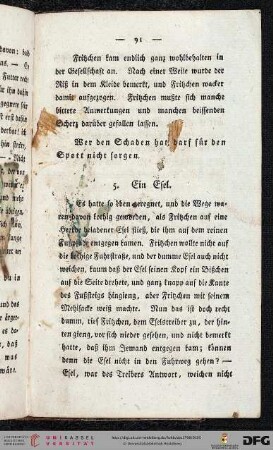 — 91 —
Fritzchen kam endlich ganz wohlbehalten in
der Gesellschaft an. Nach einer Weile wurde der
Riß in dem Kleide bemerkt, und Fritzchen wacker
damit aufgezogen. Fritzchen mußte sich manche
bittere Anmerkungen und manchen beissenden
Scherz darüber gefallen lassen.
Wer den Schaden hat darf für den
Spott nicht sorgen.
5. Ein Esel.
Es hatte so eben geregnet, und die Wege wa-
ren davon kothig geworden, als Fritzchen auf eine
Heerde beladener Esel stieß, die ihm auf dem reinen
Fußpfade entgegen kamen. Fritzchen wollte nicht auf
die kothige Fahrstraße, und der dumme Esel auch nicht
weichen, kaum daß der Esel seinen Kopf ein Bißchen
auf die Seite drehete, und ganz knapp auf die Kante
des Fußsteigs hingieng, aber Fritzchen mit seinem
Mehlsacke weiß machte. Nun das ist doch recht
dumm, rief Fritzchen, dem Eselstreiber zu, der hin-
ten gieng, vor sich nieder gesehen, und nicht bemerkt
hatte, daß ihm Jemand entgegen kam; können
denn die Esel nicht in den Fuhrweg gehen? —
Esel, war des Treibers Antwort, weichen nicht
UNIKASSEL
VERSITÄT
DFG